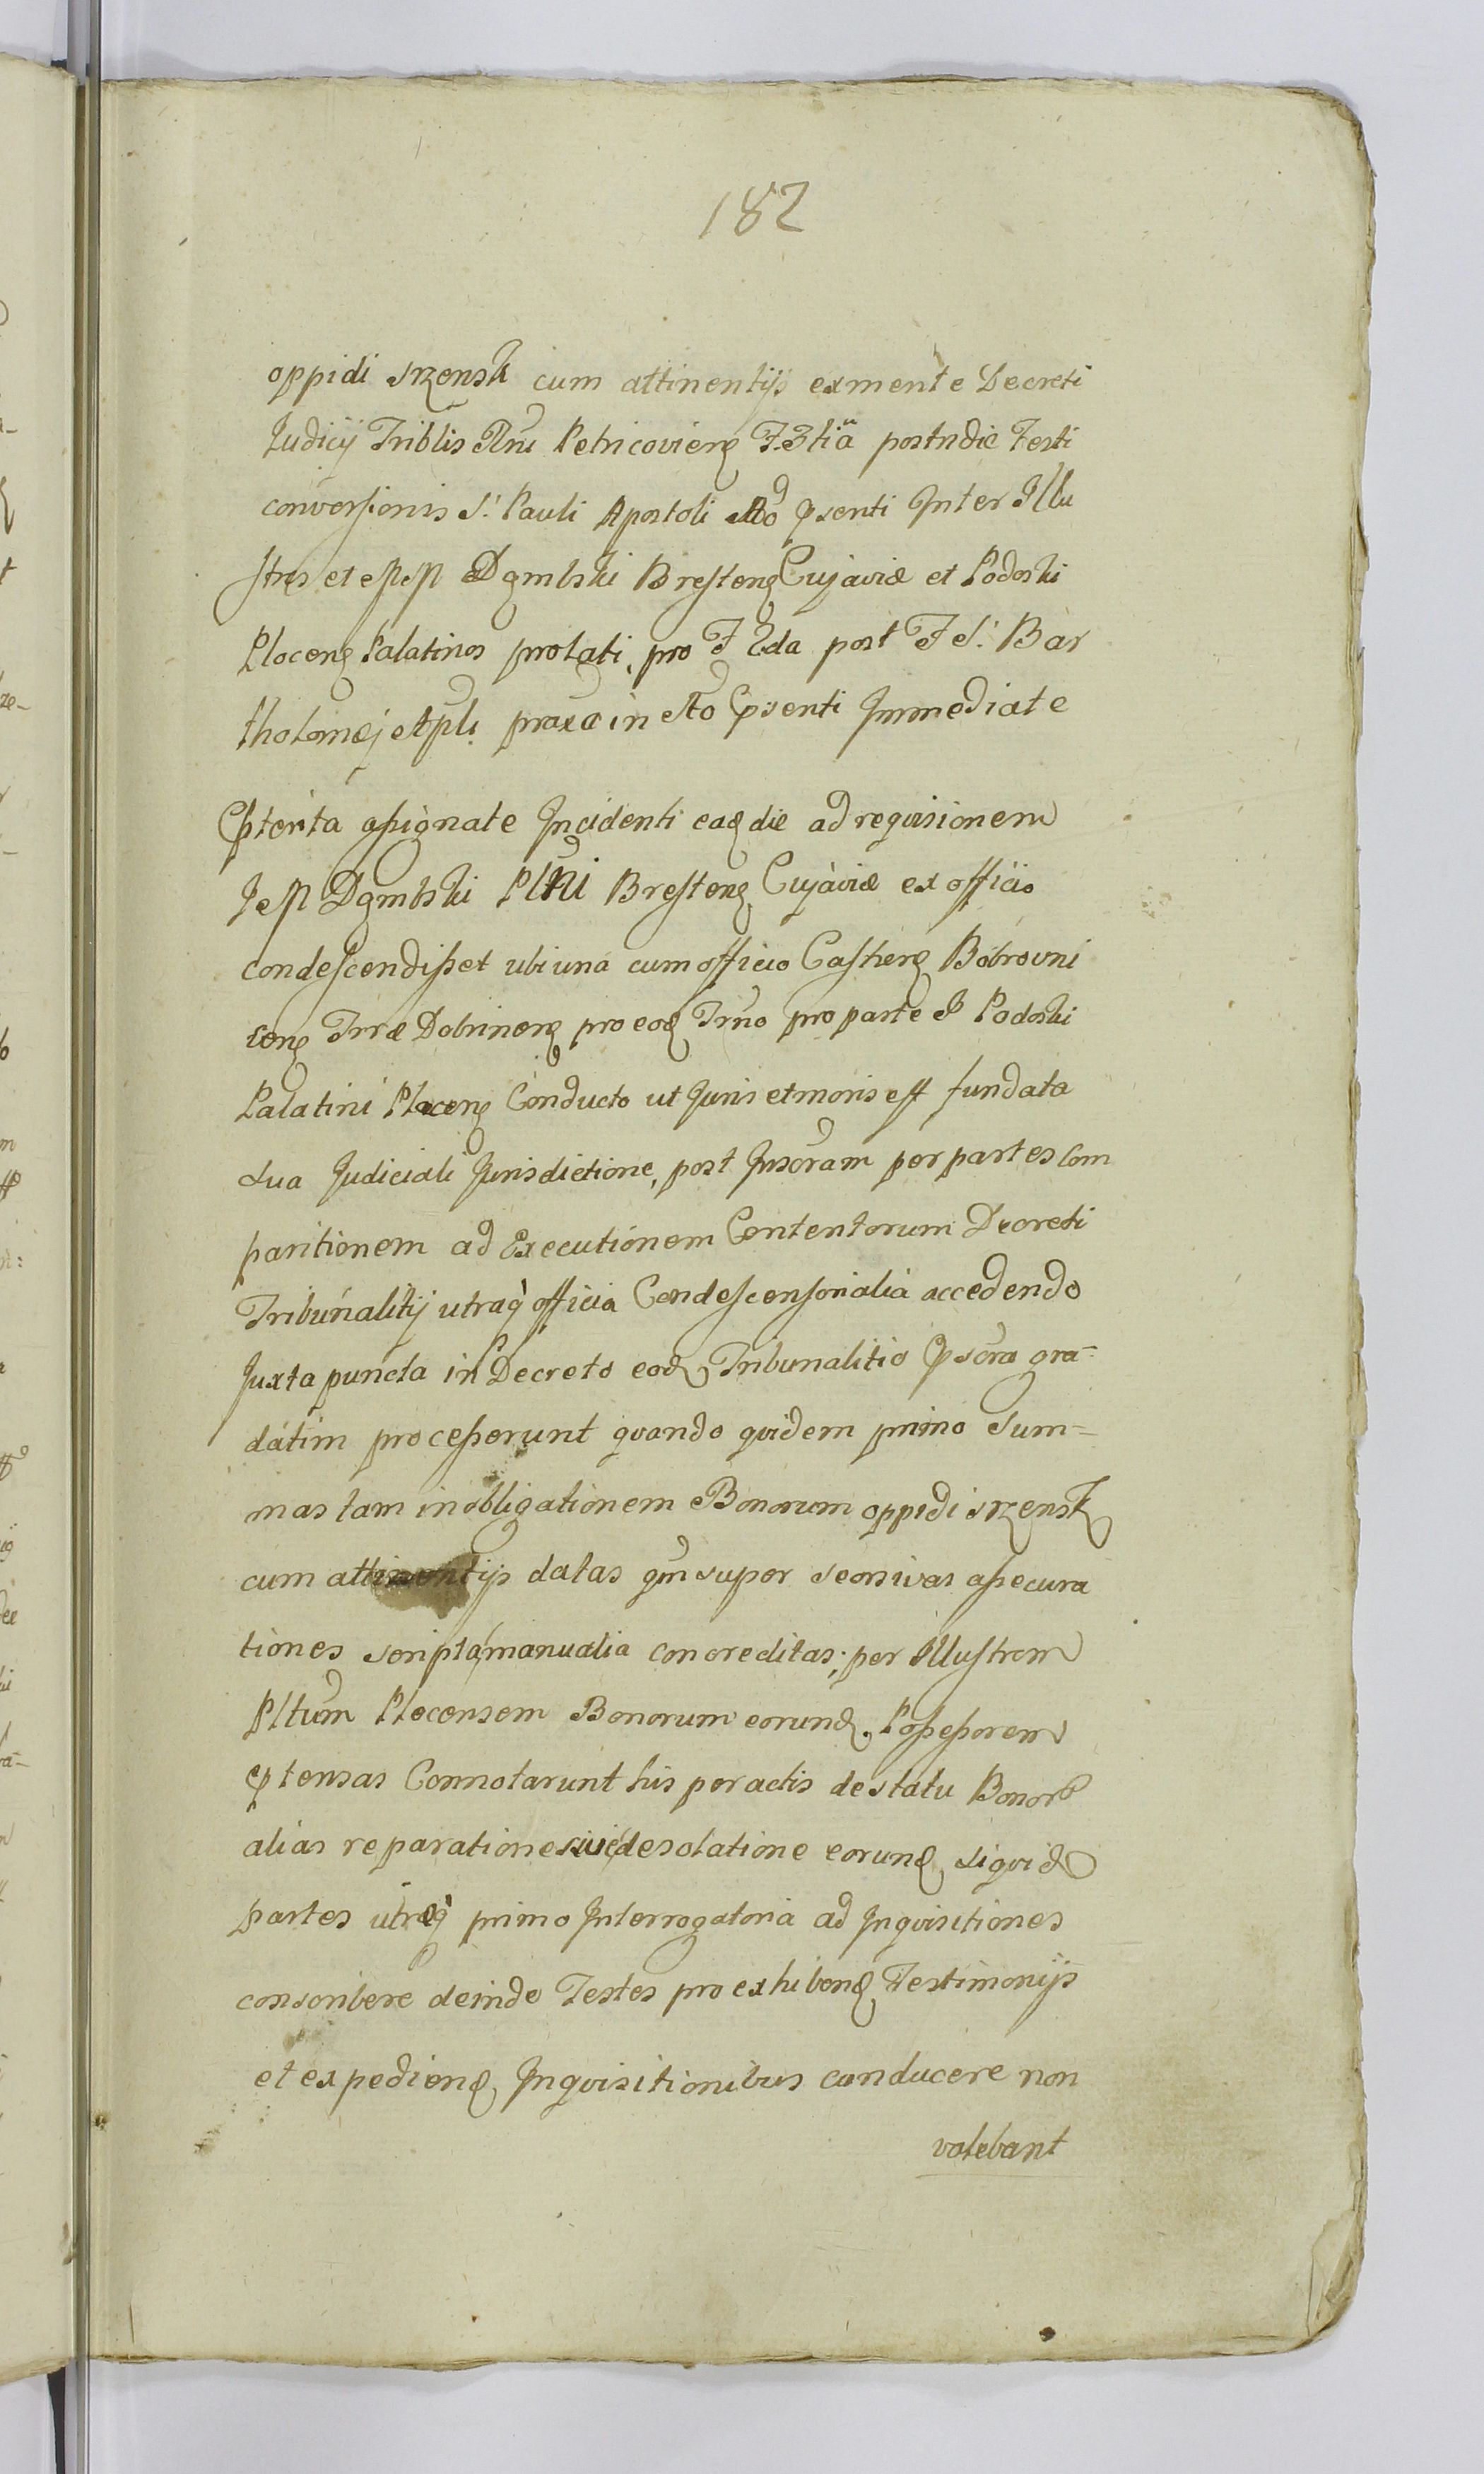 182
oppidi Srzensk cum attinentijs ex mente Decreti
Judicij Triblis Rni Petricovien F. 3tia postridie Festi
conversionis S. Pauli Apostoli Ao psenti Inter Illu
stres et MM Dąmbski Bresten Cujaviæ et Podoski
Plocen Palatinos prolati, pro F 2da post F S. Bar
tholomæj Apli proxa in Ao psenti Immediate
pterita assignate Incidenti ead die ad requisitionem
J M Dąmbski Pltni Bresten Cujaviæ ex officio
condescendisset ubi una cum officio Castren Bobrovni
cen Trræ Dobrinen pro eod Trno pro parte J Podoski
Palatini Plocen Conducto ut Juris et moris est fundata
sua Judiciali Jurisdictione, post Juscram per partes Com
paritionem ad Executionem Contentorum Decreti
Tribunalitij utraq officia Condescensorialia accedendo
Juxta puncta in Decreto eod Tribunalitio pscra gra-
datim processerunt quando quidem primo Sum-
mas tam in obligationem Bonorum oppidi Srzensk
cum attinentijs datas qm super seorsivas assecura
tiones scripta manualia concreditas, per Illustrem
Pltum Plocensem Bonorum eorund. Possessorem
ptensas Connotarunt his peractis de statu Bonor
alias reparatione sive desolatione eorund siquid
partes utræq primo Interrogatoria ad Inquisitiones
conscribere deinde Testes pro exhibend Testimonijs
et expediend Inquisitionibus conducere non
valebant